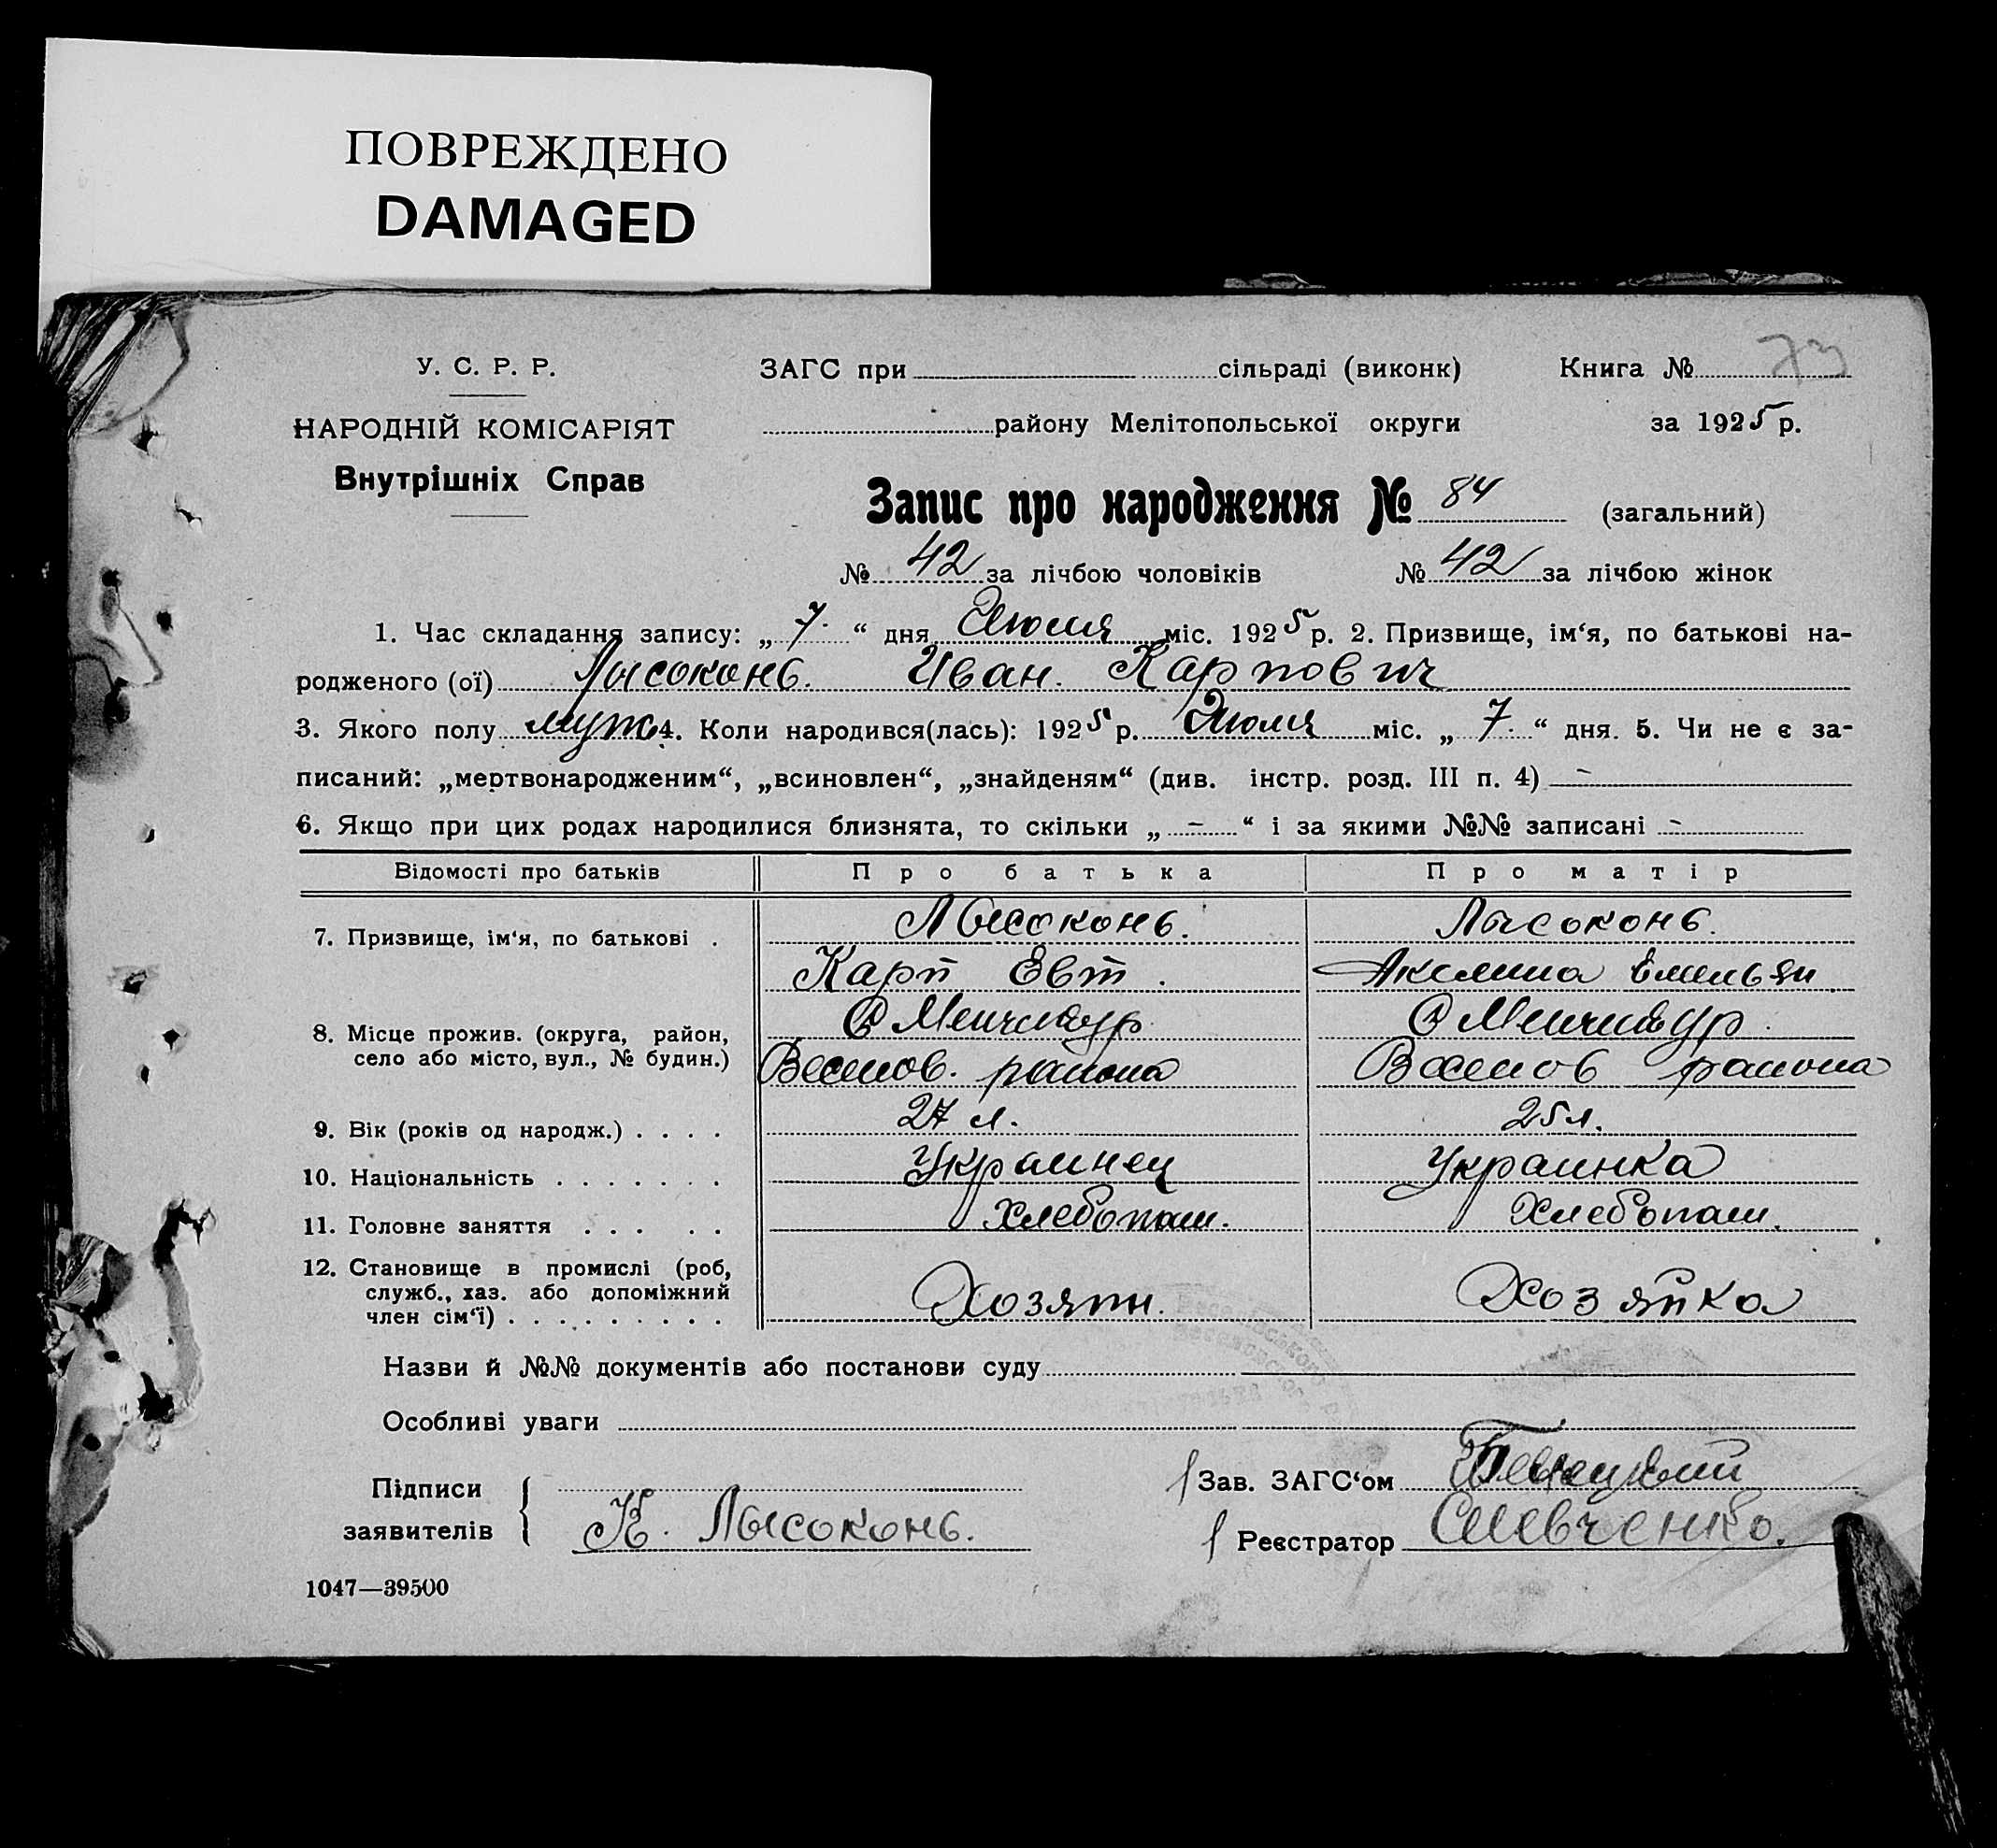 ПОВРЕЖДЕНО
DAMAGED
У. С. Р. Р.
ЗАГС при сільраді (виконк)
Книга № 73
НАРОДНІЙ КОМІСАРІЯТ
району Мелітопольської округи
за 1925 р.
Внутрішніх Справ
Запис про народження № 84 (загальний)
№ 42 за лічбою чоловіків № 42 за лічбою жінок
1. Час складання запису: „ 7 “ дня Июля міс. 1925 р. 2. Призвище, ім‘я, по батькові на-
родженого (ої) Лысоконь. Иван. Карпович
3. Якого полу муж 4. Коли народився(лась): 1925 р. Июля міс. „ 7. “ дня. 5. Чи не є за-
писаний: „мертвонародженим“, „всиновлен“, „знайденям“ (див. інстр. розд. III п. 4) -
6. Якщо при цих родах народилися близнята, то скільки „ - “ і за якими №№ записані -
Відомості про батьків Про батька Про матір
7. Призвище, ім‘я, по батькові . Лысоконь. Лысоконь.
Карп Евт. Аксинia Емельян
8. Місце прожив. (округа, район, С Менчикур С Менчикур.
село або місто, вул., № будин.) Веселов. района Веселов района
9. Вік (років од народж.) . . . . 27 л. 25 л.
10. Національність . . . . . . . Украинец Украинка
11. Головне заняття . . . . . Хлебопаш. Хлебопаш.
12. Становище в промислі (роб,
служб., хаз. або допоміжний Хозяин. Хозяйка
член сім‘ї) . . . . . . . . .
Назви й №№ документів або постанови суду
Особливі уваги
Підписи
заявителів К. Лысоконь.
Зав. ЗАГС‘ом
Реєстратор Шевченко.
1047—39500